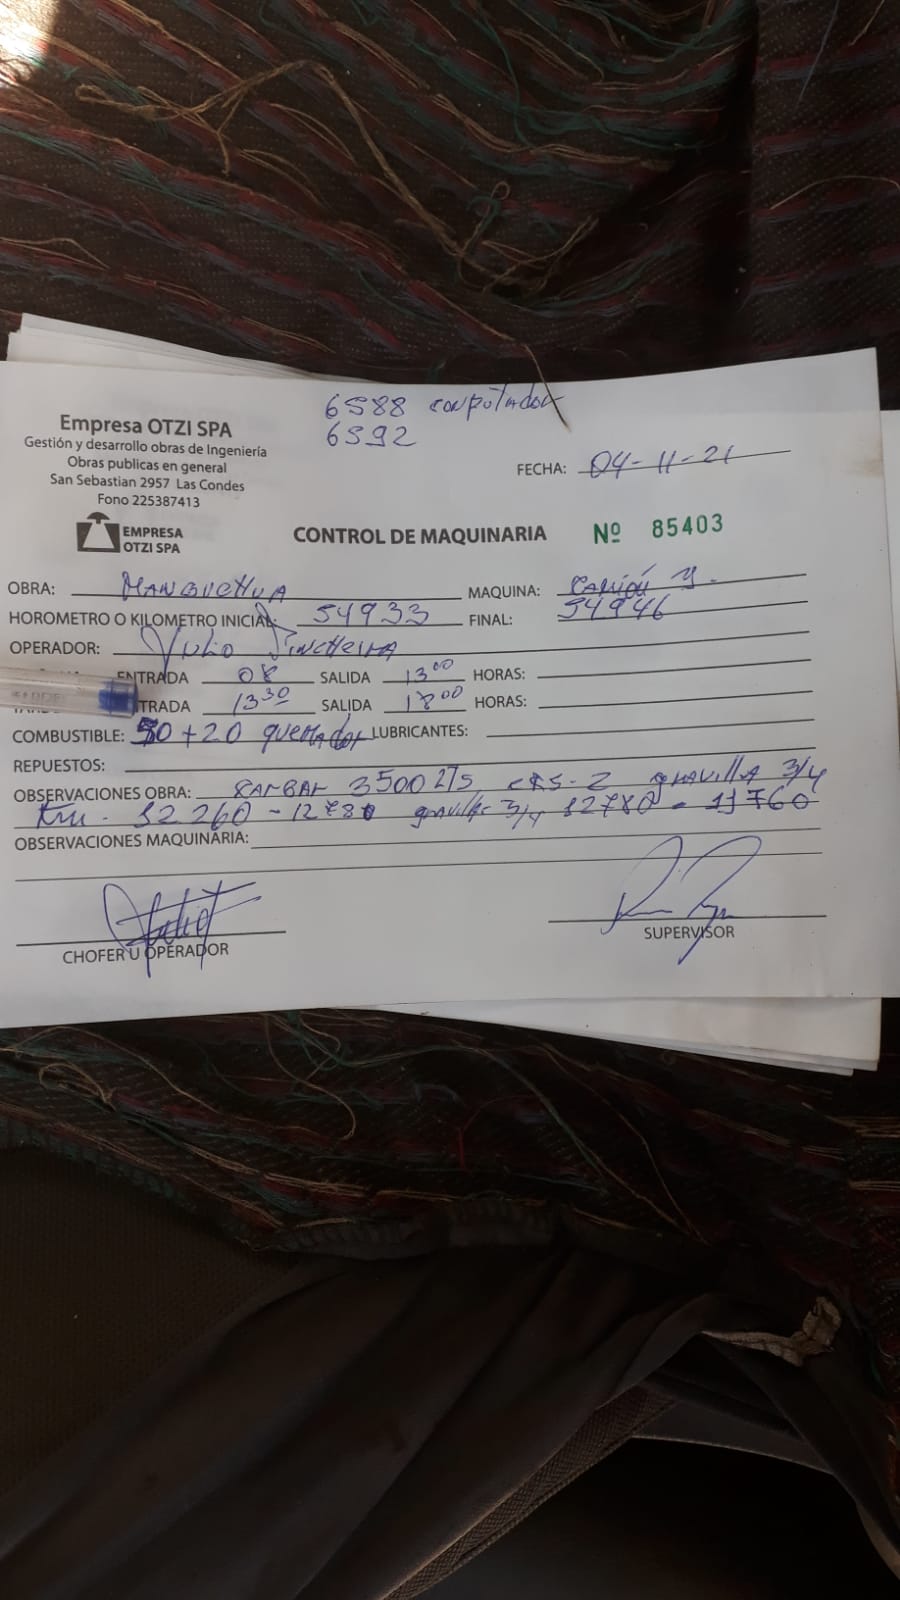 6588 computador
6592
Empresa OTZI SPA
Gestión y desarrollo obras de Ingeniería
Obras publicas en general
San Sebastian 2957 Las Condes
Fono 225387413
FECHA: 04-11-21
EMPRESA
OTZI SPA
CONTROL DE MAQUINARIA Nº 85403
OBRA: MANQUEHUA MAQUINA: Camión
HOROMETRO O KILOMETRO INICIAL: 54933 FINAL: 54946
OPERADOR: Julio Pincheira
ENTRADA 08 SALIDA 13 00 HORAS:
TRADA 13 30 SALIDA 18 00 HORAS:
COMBUSTIBLE: 50 + 20 quemador LUBRICANTES:
REPUESTOS:
OBSERVACIONES OBRA: 3500 LTS CRS-2 gravilla 3/4
Km. 12 260 - 12780 gravilla 3/4 12780 - 11760
OBSERVACIONES MAQUINARIA:
CHOFER U OPERADOR
SUPERVISOR